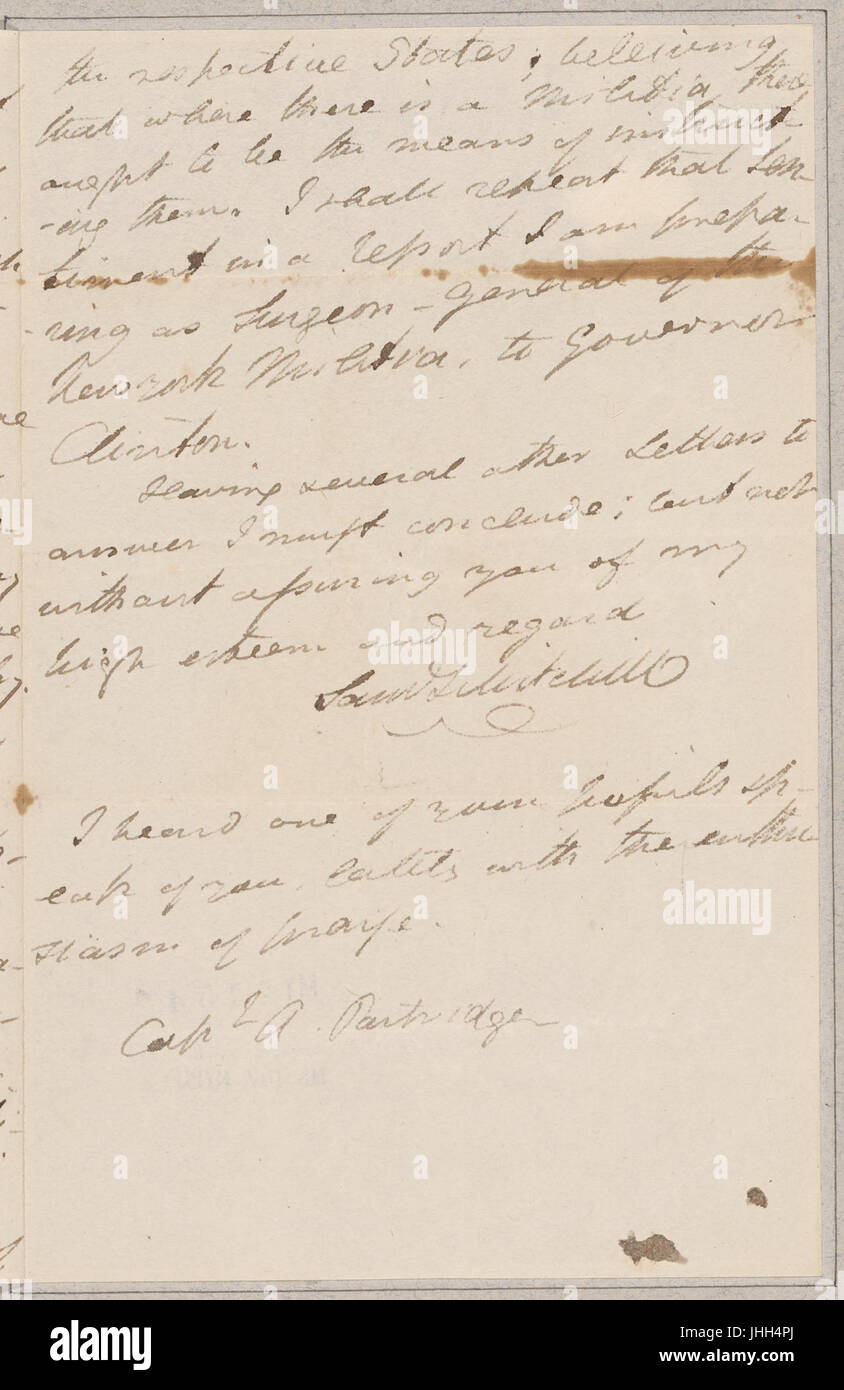 the respective States; believing
that where there is a Militia, there
ought to be the means of instruct
-ing them. I shall repeat that sen-
timent in a report I am prepa-
-ring as Surgeon-General of the
New york Militia, to Governor
Clinton.
Having several other Letters to
answer I must conclude; but not
without assuring you of my
high esteem and regard
Saml L Mitchill
I heard one of your pupils sp-
eak of you, latety with the enthu
siasm of praise.
Capt A. Partridge
a alamy stock photo
alamy
Image ID: JHH4PJ
www.alamy.com